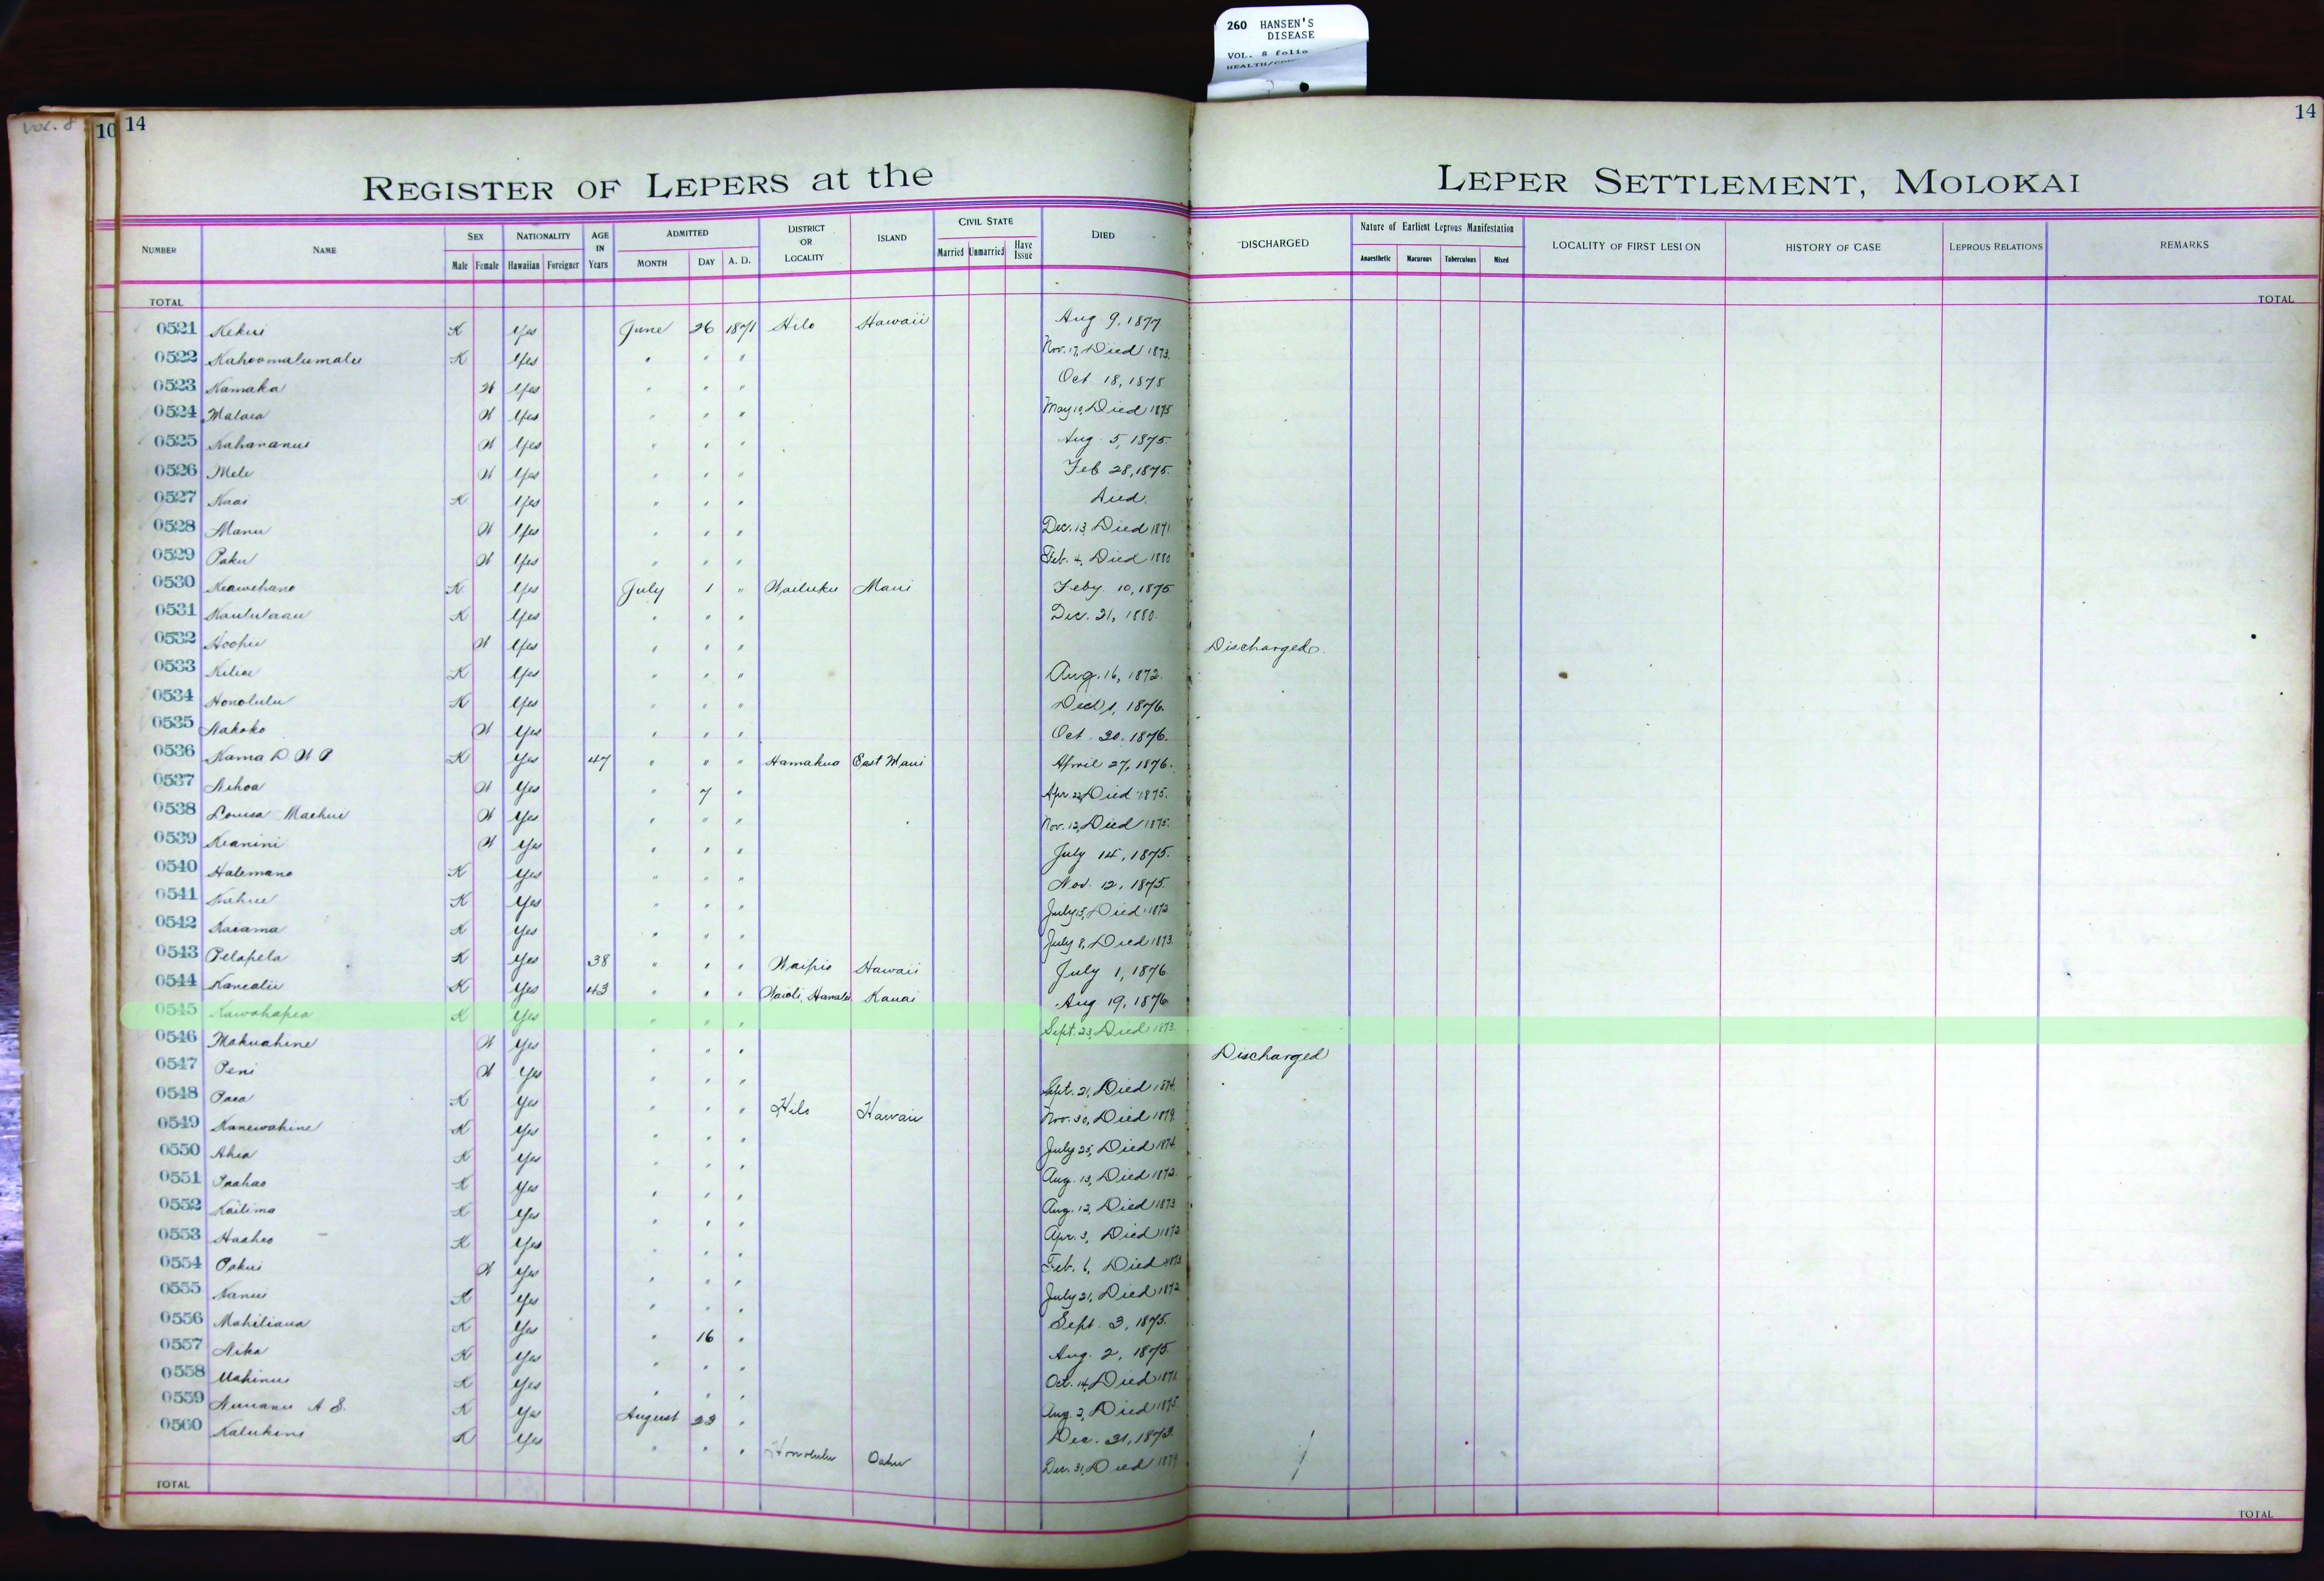 260 HANSEN'S
DISEASE
VOL. 8 folio
VOL. 8
10 14
14
REGISTER OF LEPERS at the LEPER SETTLEMENT, MOLOKAI
NUMBER NAME SEX NATIONALITY AGE IN Years ADMITTED DISTRICT OR LOCALITY ISLAND CIVIL STATE DIED DISCHARGED Nature of Earliest Leprous Manifestation LOCALITY OF FIRST LESION HISTORY OF CASE LEPROUS RELATIONS REMARKS
Male Female Hawaiian Foreigner MONTH DAY A. D. Married Unmarried Have Issue Anaesthetic Macurous Tuberculous Mixed
TOTAL TOTAL
0521 Kekui K Yes June 26 1871 Hilo Hawaii Aug 9, 1877
0522 Kahoomalumalu K Yes " " " Nov. 17, Died 1873.
0523 Kamaka W Yes " " " Oct 18, 1875
0524 Malaea W Yes " " " May 10, Died 1875
0525 Kahananui W Yes " " " Aug. 5, 1875.
0526 Mele W Yes " " " Feb 28, 1875.
0527 Kaai K Yes " " " Died.
0528 Manu W Yes " " " Dec. 13, Died 1871
0529 Paku W Yes " " " Feb. 4, Died 1880
0530 Keawehano K Yes July 1 " Wailuku Maui Feby 10, 1875
0531 Kaululaau K Yes " " " Dec. 21, 1880.
0532 Hoohii W Yes " " " Discharged.
0533 Kiliae K Yes " " " Aug. 16, 1872.
0534 Honolulu K Yes " " " 1, 1876.
0535 Nakoko W Yes " " " Oct 20, 1876.
0536 Kama D. W P K Yes 47 " " " Hamakua East Maui April 27, 1876.
0537 Nihoa W Yes " 7 " Apr. 22, Died 1875.
0538 Louisa Maehui W Yes " " " Nov. 12, Died 1875.
0539 Keanini W Yes " " " July 14, 1875.
0540 Halemano K Yes " " " Nov. 12, 1875.
0541 Kahue K Yes " " " July 15, Died 1872
0542 Kaiama K Yes " " " July 8, Died 1873.
0543 Pelapela K Yes 38 " " " Waipio Hawaii July 1, 1876
0544 Kanealii K Yes 43 " " " Waioli, Hanalei Kauai Aug 19, 1876
0545 Kawahapea K Yes " " " Sept. 23, Died 1873.
0546 Makuahine W Yes " " " Discharged
0547 Peni W Yes " " " Sept. 21, Died 1874.
0548 Paea K Yes " " " Hilo Hawaii Nov. 30, Died 1879.
0549 Kanewahine K Yes " " " July 25, Died 1874.
0550 Ahia K Yes " " " Aug. 13, Died 1872.
0551 Paahao K Yes " " " Aug. 12, Died 1873
0552 Kailima K Yes " " " Apr. 3, Died 1872
0553 Haaheo K Yes " " " Feb. 6, Died 1873
0554 Pakui W Yes " " " July 21, Died 1872
0555 Nanui K Yes " " " Sept. 3, 1875.
0556 Mahiliana K Yes " 16 " Aug. 2, 1875.
0557 Nika K Yes " " " Oct. 14, Died 1871
0558 Mahinui K Yes " " " Aug. 2, Died 1875.
0559 Nuuanu A S. K Yes August 23 " Dec. 31, 1873.
0560 Kalukini K Yes " " " Honolulu Oahu Dec. 31, Died 1879
TOTAL TOTAL